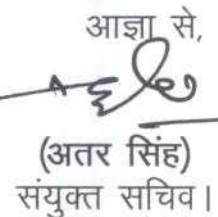 आज्ञा से,
(अतर सिंह)
संयुक्त सचिव।